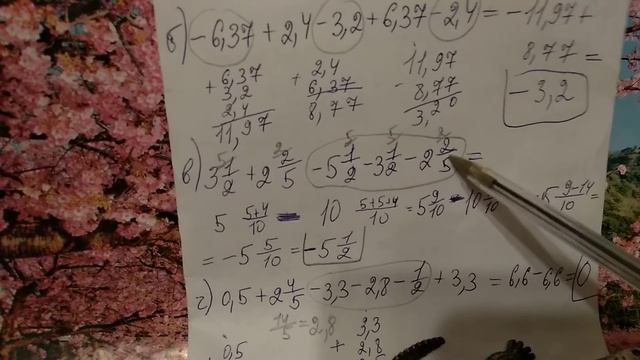 б) -6,37 + 2,4 - 3,2 + 6,37 - 2,4 = -11,97 +
8,77 =
-3,2
+ 6,37
3,2
2,4
11,97
+ 2,4
6,37
8,77
- 11,97
8,77
3,20
в) 3 1/2 + 2 2/5 - 5 1/2 - 3 1/2 - 2 2/5 =
5 5+4/10 - 10 5+5+4/10 = 5 9/10 - 10 14/10 = -5 9-14/10 =
= -5 5/10 = -5 1/2
г) 0,5 + 2 4/5 - 3,3 - 2,8 - 1/2 + 3,3 = 6,6 - 6,6 = 0
14/5 = 2,8
0,5
3,3
+ 2,8